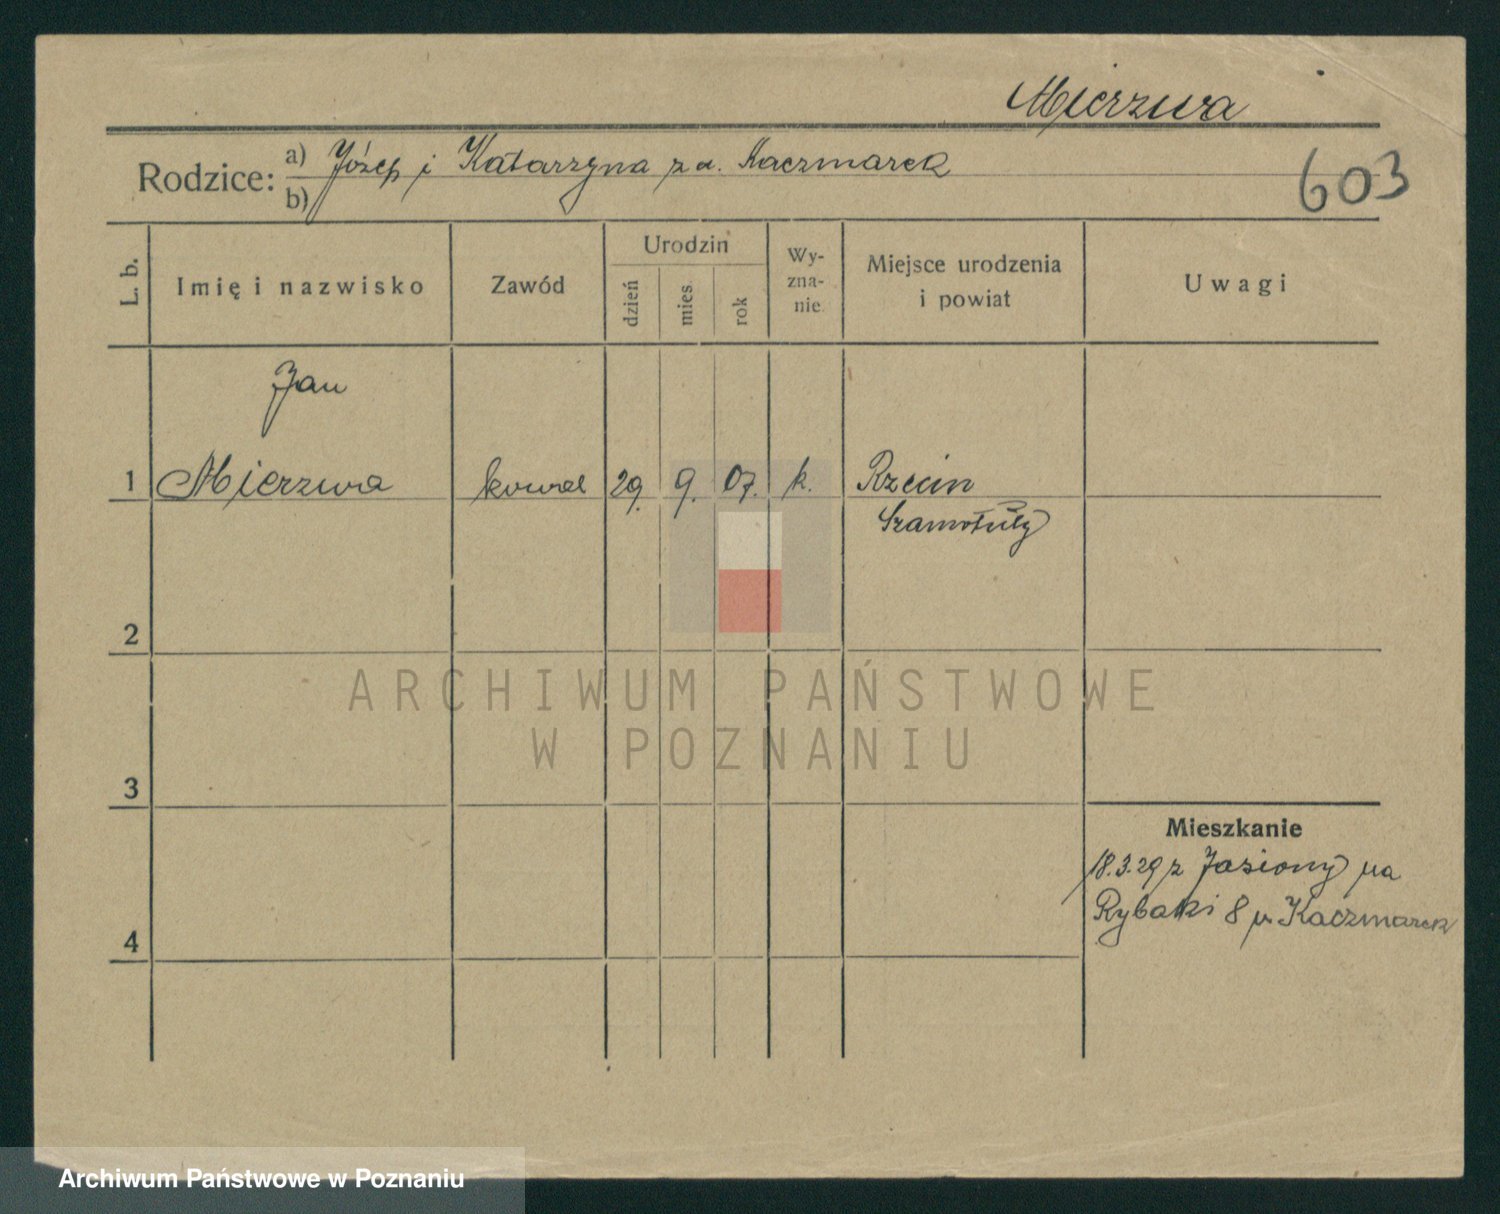 Mierzwa
Rodzice: a) Józef i Katarzyna z d. Kaczmarek
b)
603
L. b.
Imię i nazwisko
Zawód
Urodzin
dzień
mies.
rok
Wy-
zna-
nie
Miejsce urodzenia
i powiat
Uwagi
Jan
1 Mierzwa kowal 29. 9. 07. k. Rzecin
Szamotuły
2
ARCHIWUM PAŃSTWOWE
W POZNANIU
3
Mieszkanie
18.3.29 z Jasiony na
Rybaki 8 p. Kaczmarek
4
Archiwum Państwowe w Poznaniu